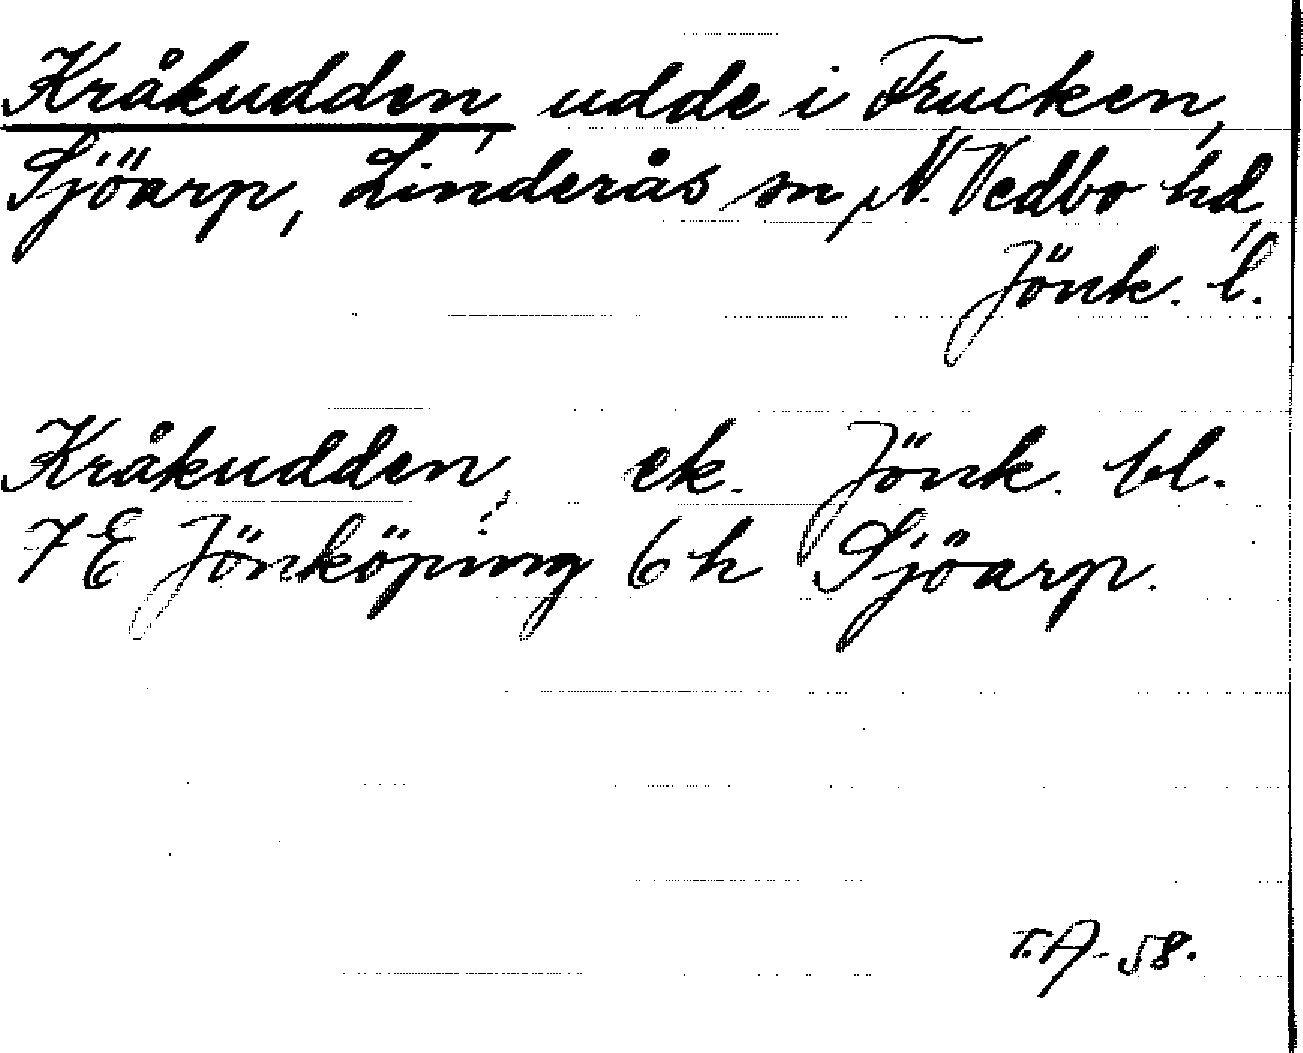 Kråkudden, udde i Frucken,
Sjöarp, Linderås sn, N. Vedbo hd,
Jönk. l.
Kråkudden, ek. Jönk. bl.
7E Jönköping 6h Sjöarp.
T.A-58.